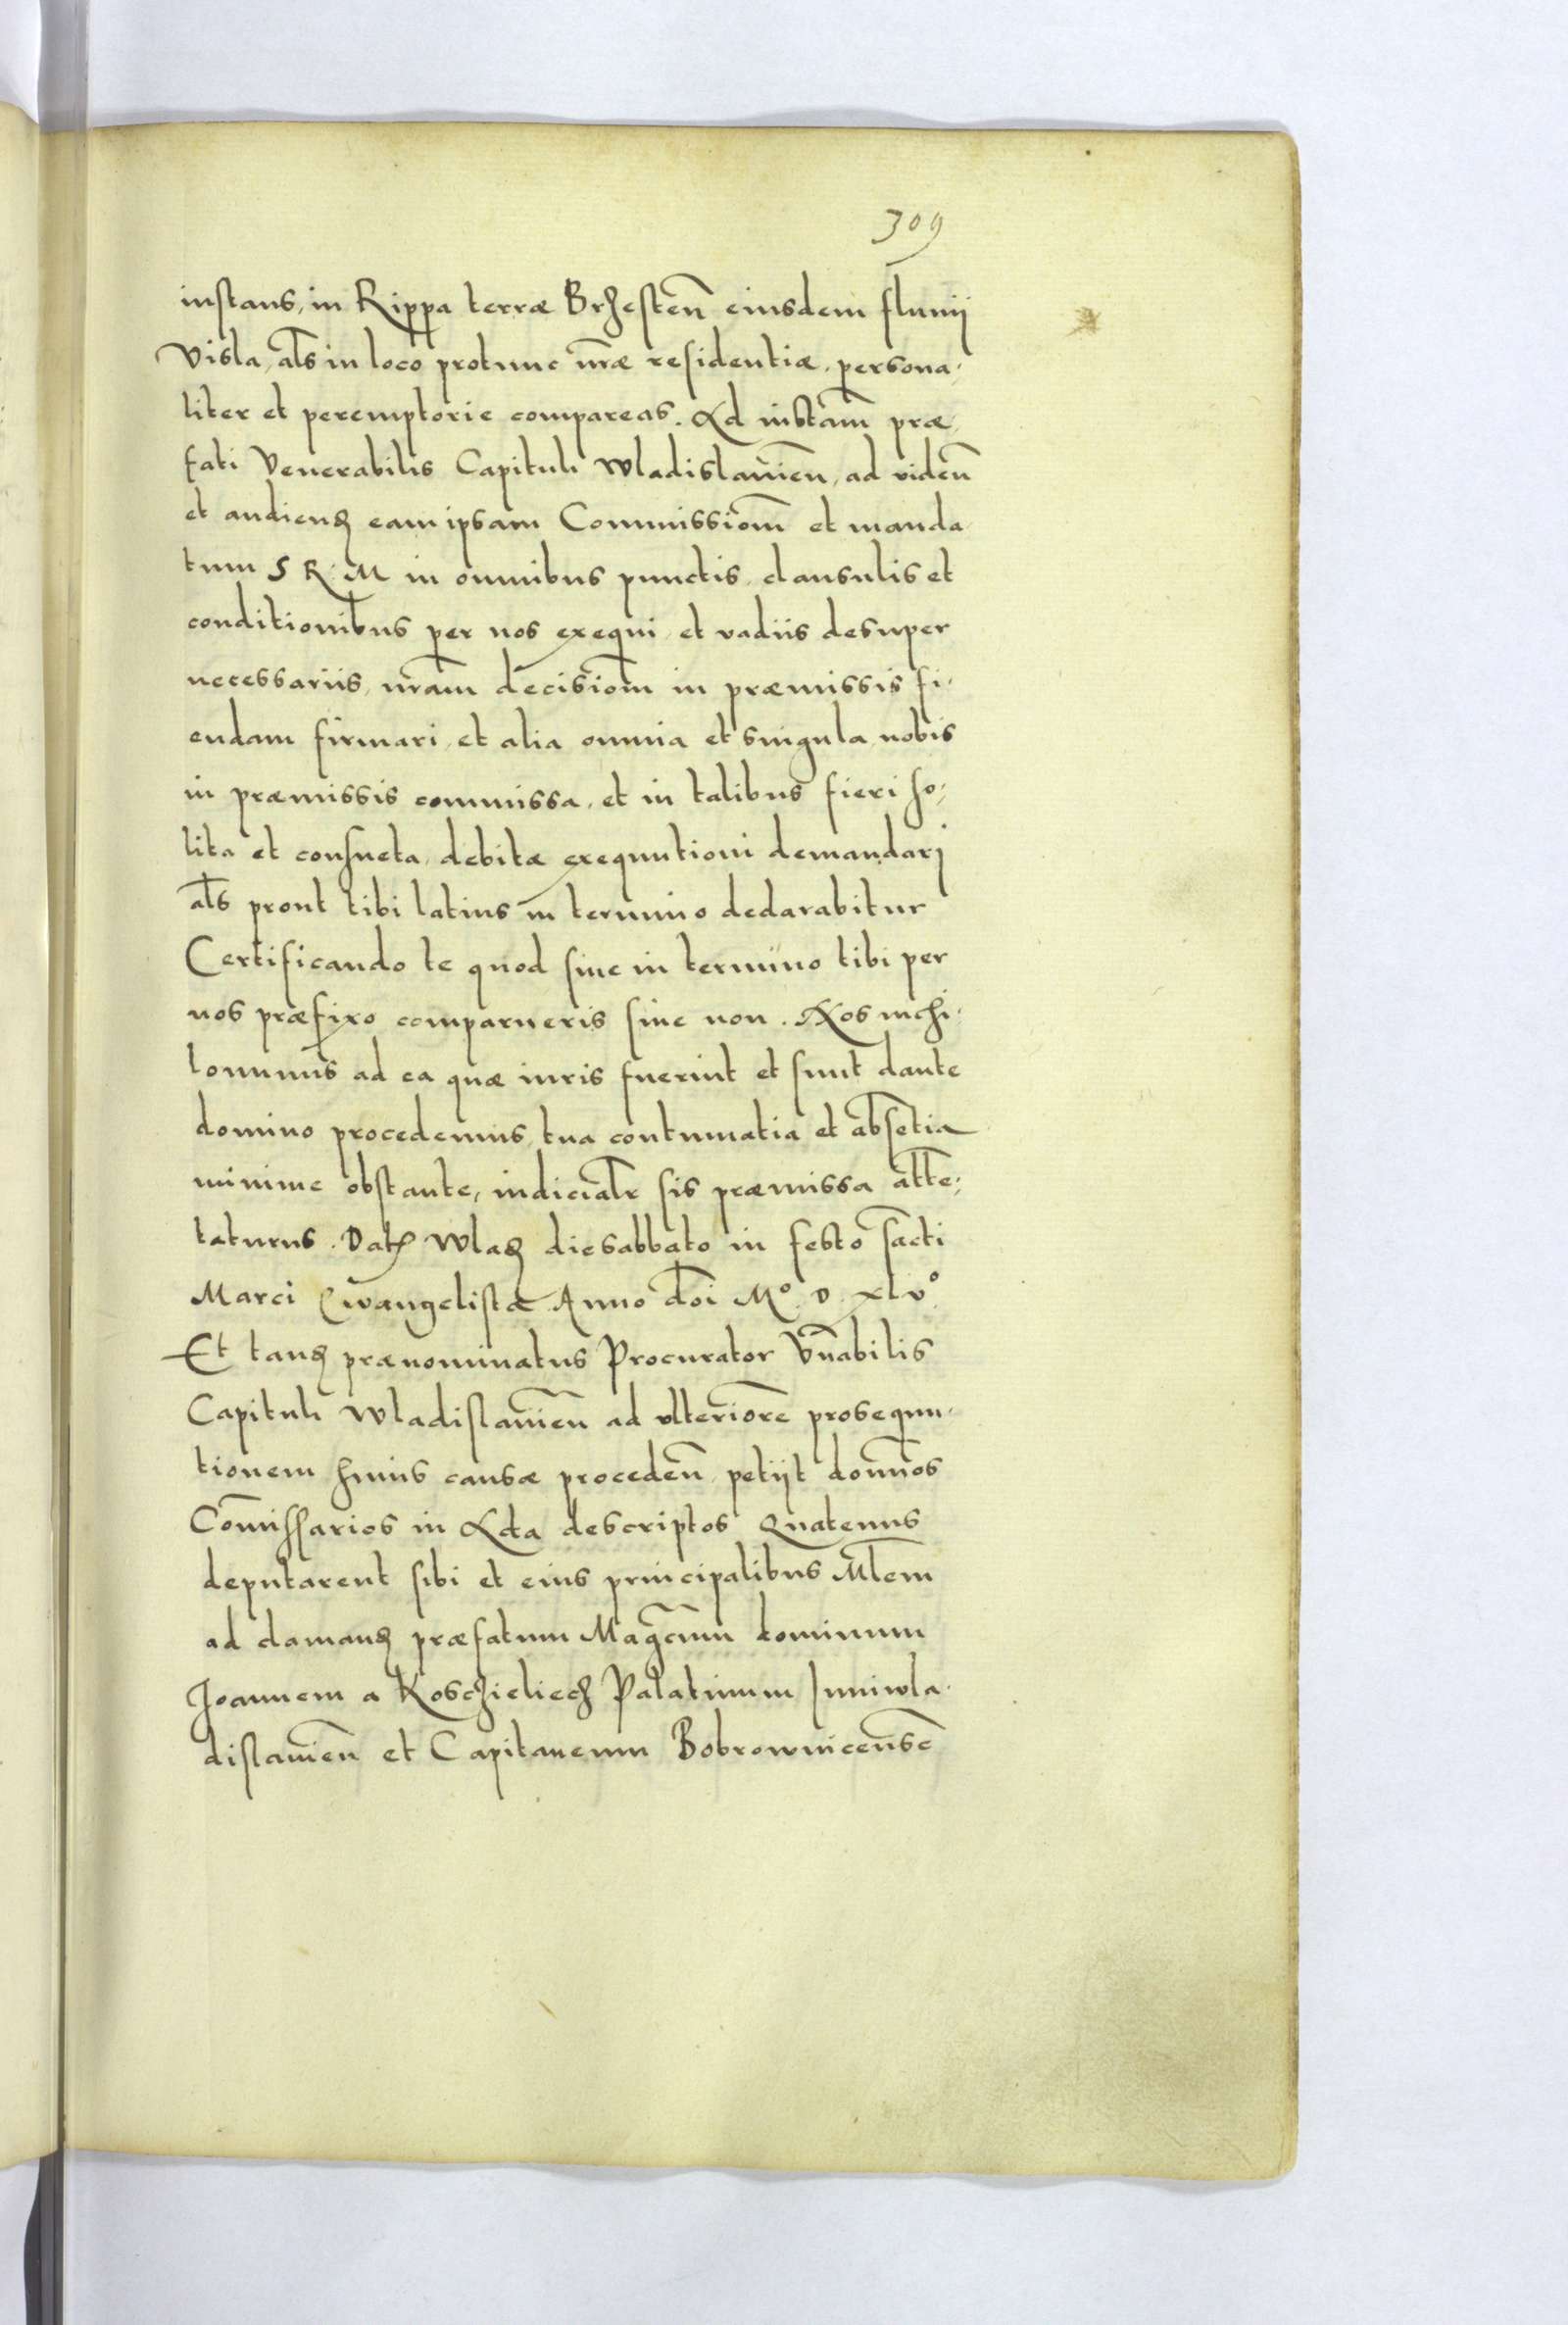 309
instans, in Rippa terræ Brzesten̄ eiusdem fluuij
Visla, al̄s in loco protunc nr̄æ residentiæ, persona⸗
liter et peremptorie compareas. Ad instam̄ præ⸗
fati Venerabilis Capituli Wladislauien̄, ad viden̄
et audienꝫ eam ipsam Commissiom̄ et manda
tum S R M in omnibus punctis, clausulis et
conditionibus per nos exequi, et vadiis desuper
necessariis, nr̄am decisiom̄ in præmissis fi⸗
endam firmari, et alia omnia et singula nobis
in præmissis commissa, et in talibus fieri so⸗
lita et consueta, debitæ exequutioni demandari
al̄s prout tibi latius in termino declarabitur
Certificando te quod siue in termino tibi per
nos præfixo comparueris siue non. Nos nichi⸗
lominus ad ea quæ iuris fuerint et sunt dante
domino procedemus, tua contumatia et abse̅tia
minime obstante, iudicialr̄ sis præmissa atte⸗
taturus. Datꝭ Wlaꝫ die sabbato in festo sa̅cti
Marci Ewangelistæ Anno do̅i Mº D xlvº
Et tanꝫ prænominatus Procurator Vn̄abilis
Capituli Wladislauien̄ ad vlteriore̅ prosequu⸗
tionem huius causæ proceden̄, petijt domn̄os
Com̄issarios in Acta descriptos Quatenus
deputarent sibi et eius principalibus Ml̄em
ad clamanꝫ præfatum Magcu̅m dominum
Joannem a Koschieliecz Palatinum Juniwla⸗
dislauien̄ et Capitaneum Bobrownicen̄se